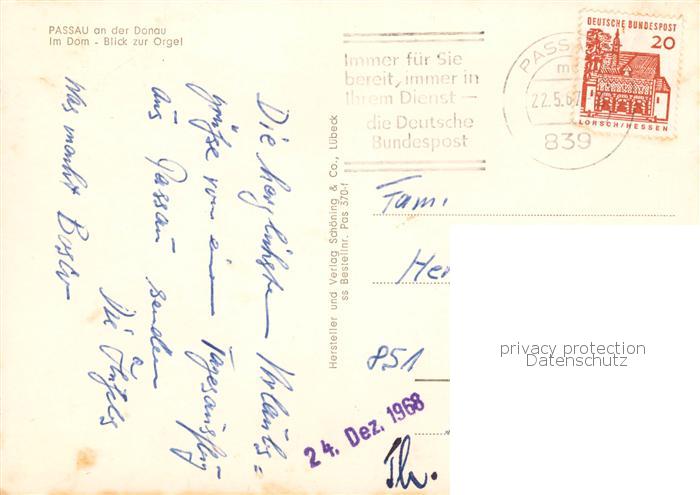 PASSAU an der Donau
Im Dom - Blick zur Orgel
Die herzlichsten Urlaubs=
grüße von einem Tagesausflug
aus Passau senden
Die
Was macht
Hersteller und Verlag Schöning & Co., Lübeck
ss Bestellnr. Pas 370-f
Immer für Sie
bereit, immer in
Ihrem Dienst —
die Deutsche
Bundespost
PASSAU
22.5.67
839
DEUTSCHE BUNDESPOST
20
LORSCH/HESSEN
Fam.
851
24. Dez. 1968
Th.
privacy protection
Datenschutz